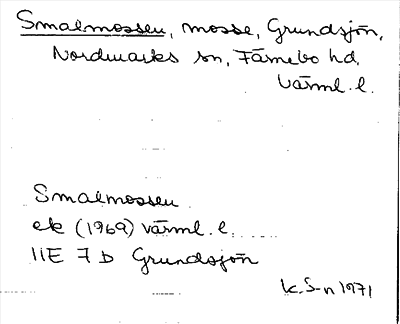 Smalmossen, mosse, Grundsjön,
Nordmarks sn, Färnebo hd,
Värml. l.
Smalmossen
ek (1969) Värml. l.
11E 7D Grundsjön
K. S-n 1971